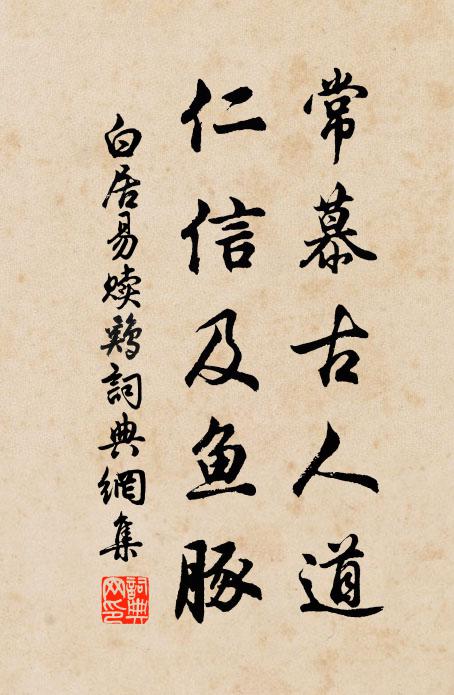 常慕古人道
仁信及鱼豚
白居易赎鸡詞典網集
詞典网印